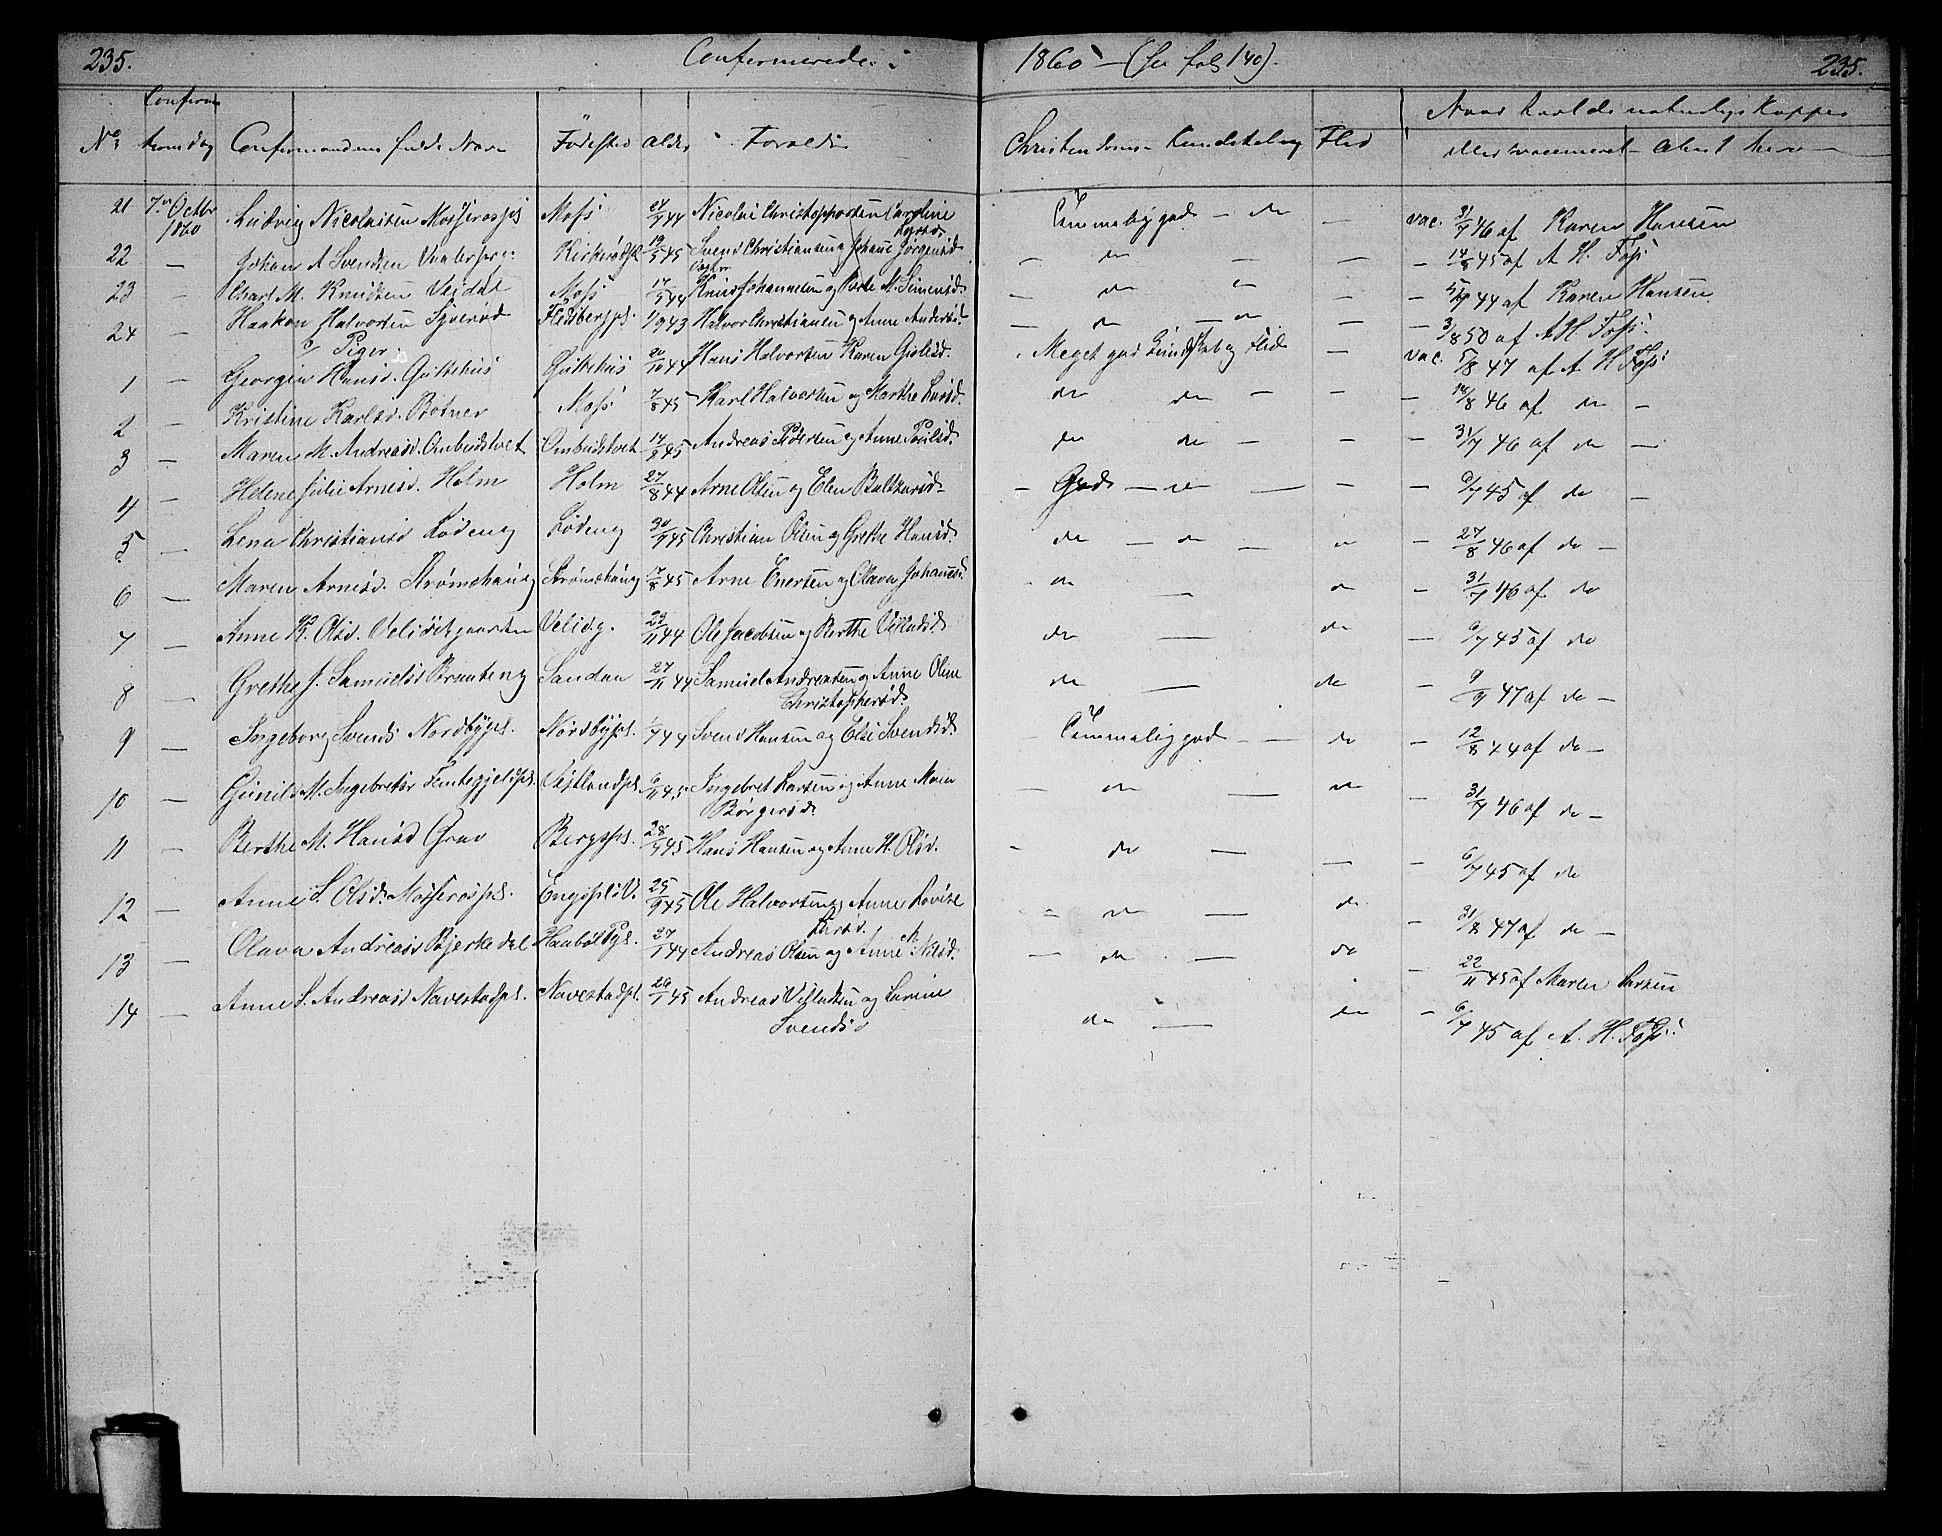 235. Confirmerede i 1860 — (se fol 140). 235.
Confirmationsdag
No Confirmandens fulde Navn Födested Alder Foreldre Christendoms-Kundskab og Flid Naar havt de naturlige Kopper
eller vaccineret
21 7de Octbr 1860 Ludvig Nicolaisen Mosserosps Moss 24/1 44 Nicolai Christophersen Caroline Larsd. Temmelig god — do — vac. 31/7 46 af Karen Hansen
22 — Johan A Svendsen Kirkerödps 19/5 45 Svend Christiansen og Johane Jörgensd. — do — — — 14/8 45 af A H. Foss
23 — Charl M. Knudsen Vejdal Moss 14/9 44 Knud Johannesen og Berte M. Simensd. — do — — 44 af Karen Hansen
24 — Haakon Halvorsen Flesbergps. 1/9 43 Halvor Christiansen og Anne Andersd. — do — do — — 3/8 50 af A H Foss
b/ Piger.
1 — Georgine Hansd. Gulkehus Gulkehus 20/10 44 Hans Halvorsen Karen Gislesd. Meget god Kundskab og Flid — vac. 5/8 47 af A H Foss
2 — Kristine Karlsd. Botner Moss 7/8 45 Karl Halvorsen og Marthe Larsd. do do — — — 14/8 46 af do —
3 — Maren M. Andreasd. Ombudstvet Ombudstvet 14/8 45 Andreas Pedersen og Anne Poulsd. do do — — — 31/7 46 af do —
4 — Helene Julie Arnesd. Holm Holm 27/8 44 Arne Olsen og Elen Baltharsd. — God — do — — — 6/7 45 af do —
5 — Lena Christiansd Lödeng Lödeng 30/9 45 Christian Olsen og Grethe Hansd. do — do — do — 27/8 46 af do —
6 — Maren Arnesd. Strömshaug Strömshaug 17/8 45 Arne Enersen og Olava Johannesd. do — do — 31/7 46 af do
7 — Anne K. Olsd. Velidsgaarden Velidsg. 23/11 44 Ole Jacobsen og Berthe do — do — 6/7 45 af do
8 — Grethe J. Samuelsd Brauteng Sandau 27/11 44 Samuel Andreasen og Anne Olene Christophersd. do — do — 9/9 47 af do —
9 — Ingeborg Svendsd Nordbyps. Nordbyps. 1/7 44 Svend Hansen og Else Svendsd. Temmelig god — — do — 12/8 44 af do —
10 — Gunild M. Ingebretsd Vestlandps. 6/11 45 Ingebret Larsen og Anne Maria Börgersd. — do — do — 31/7 46 af do —
11 — Berthe M. Hansd Grav Bergsps. 28/9 45 Hans Hansen og Anne H. Olsd. — do — — — 6/7 45 af do
12 — Anne S. Olsd. Mosserosps. 25/9 45 Ole Halvorsen og Anne Lovise Larsd. — do — do — 31/8 47 af do —
13 — Olava Andreasd Bjerkedal 27/1 44 Andreas Olsen og Anne M. Nilsd. — do — do — 22/11 45 af Maren Larsen
14 — Anne S. Andreasd Navestadps. Navestadps. 26/1 45 Andreas og Larine Svendsd do — do — 6/7 45 af A. H. Foss.